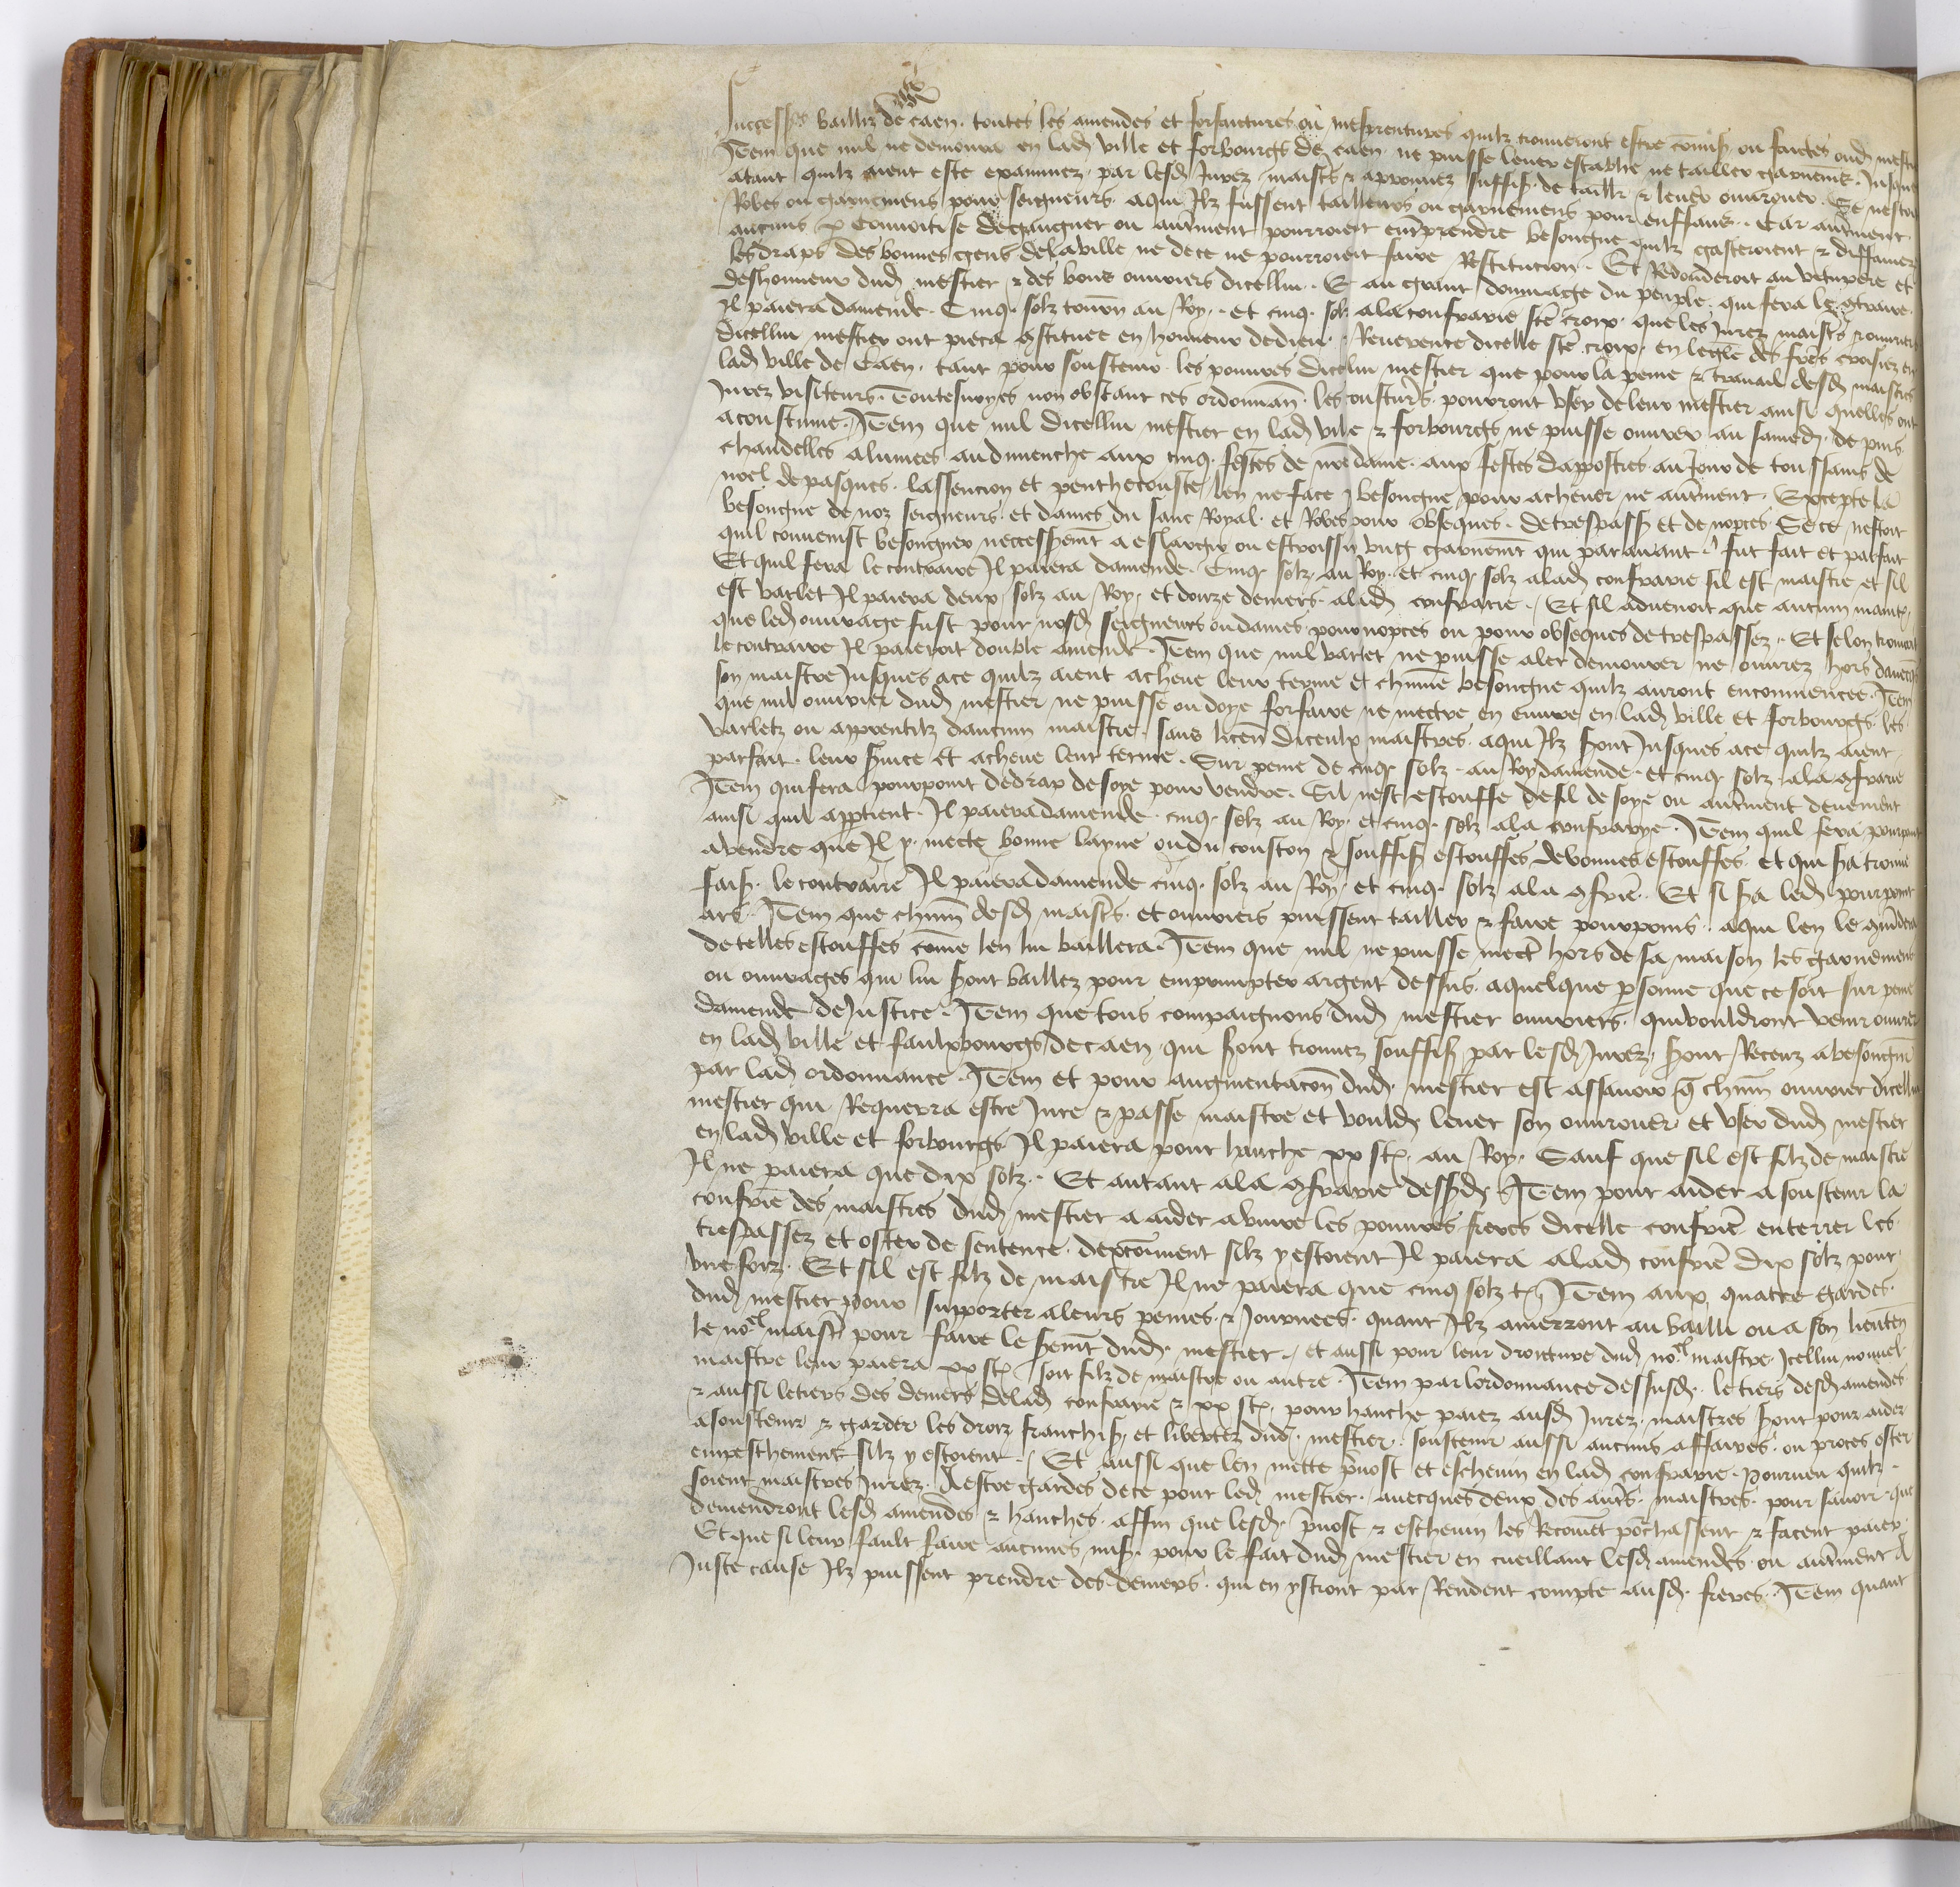 success bailliz de caen toutes les amendes et forfaictures ou mesprentures quilz trouveront estre comis ou faictes oud mest
Item que nul ne demoura en lad ville et forbourgs de caen ne puisse lever establie ne tailler garnemens Jusques
atant quilz aient este examinez par lesd Jurez maistres & approuvez suffis de taillr & lever ouvrouer Se nestoi
Robes ou garnemens pour seigneurs aqui Ilz fussent tailleurs ou garnemens pour enffans Car autment
aucuns p convoitise degaigner ou autment pourroient entrprendre besongne quilz gasteroient & diffamer
les draps des bonnes gens delaville ne dece ne pourroient faire Restitucion Et Redonderoit au vitupere et
deshonneur dud mestier & des bons ouvriers dicellui Et au grant dommage du peuple qui fera le gtraire
Il paiera damende Cinq solz tourn au Roy et cinq solz ala confrarie ste croix que les Jurez maists & ouvriers
dicellui mestier ont pieca gstituee en honneur dedieu Reverence dicelle ste croix en legle des frs croisiez en
lad ville de Caen tant pour soustenir les povres dicelui mestier que pour la peine & travail desd maistres
Jurez visiteurs Toutesvoyes non obstant ces ordonnan les cousturs pourront user deleur mestier ainsi quelles ont
acoustume Item que nul dicellui mestier en lad ville & forbourgs ne puisse ouvrer au samedi de puis
chandelles alumees audimenche aux cinq festes de nredame aux festes dappostres au Jour de toussains de
noel de pasques lassencion et penthecouste len ne face besongne pour achever ne autment Excepte la
besongne de noz seigneurs et dames du sanc Royal et Robes pour obseques detrespass et de nopces Sece nestoit
quil convenist besongner neccessemt a eslargir ou estroissir ung garnemt qui par avant fut fait et parfait
Et quil fera le contraire Il paiera damende Cinq solz au Roy et cinq solz alad confrarie sil est maistre et sil
est varlet Il paiera deux solz au Roy et douze deniers alad confrarie Et sil advenoit que aucun maintz
que led ouvrage fust pour nosd seigneurs oudames pournopces ou pour obseques detrespassez Et selon trouvoit
le contraire Il paieroit double amende Item que nul varlet ne puisse aler demourer ne ouvrez hors davecqs
son maistre Jusques ace quilz aient acheve leur terme et chmne besongne quilz auront encommencee Item
que nul ouvrier dud mestier ne puisse ou doye forfaire ne mectre en euvre en lad ville et forbourgs les
varletz ou apprentilz daucun maistre sans licen diceulx maistres aqui Ilz sont Jusques ace quilz aient
parfait leur suice et acheve leur terme Sur peine de cinq solz au Roy damende et cinq solz ala gfrarie
Item quifera pourpoint dedrap desoye pour vendre Sil nest estouffe defil de soye ou autment deuement
ainsi quil apptient Il paieradamende cinq solz au Roy et cinq solz ala confrarye Item quil fera pourpoint
avendre que Il y mecte bonne layne oudu couston & souffis estouffes debonnes estouffes et qui sa trouve
fais le contraire Il paieradamende cinq solz au Roy et cinq solz ala gfrie Et si sa led pourpoint
ars Item que chmn desd maists et ouvriers puissent tailler & faire pourpoins aqui len le gmdera
detelles estouffes come len lui baillera Item que nul ne puisse mectr hors de sa maison les garnemens
ou ouvrages qui lui sont baillez pour emprumpter argent dessus aquelque psonne que ce soit sur peine
damende deJustice Item que tous compaignons dud mestier ouvriers quivouldront venir ouvrer
en lad ville et faulxbourgs de caen qui sont trouvez souffis par lesd Jurez sont Recenz abesongnr
par lad ordonnance Item et pour augmentacon dud mestier est assavoir q chmn ouvrier dicellui
mestier qui Requerra estre Jure & passe maistre et vould lever son ouvrouer et user dud mestier
en lad ville et forbourgs Il paiera pour hanche xx st au Roy Sauf que sil est filz de maistre
Il ne paiera que dix solz Et autant ala gfrarie dessd Item pour aider a soustenir la
confrie des maistres dud mestier a aider avivre les povres freres dicelle confrie enterrer les
trespassez et oster de sentence dexcoment silz y estoient Il paiera alad confrie dix solz pour
une foiz Et sil est filz de maistre Il ne paiera que cinq solz t Item aux quatre gardes
dud mestier pour supporter aleurs peines & Journees quant Ilz amerront au bailli ou a son lieuten
le novel maist pour faire le semt dud mestier et aussi pour leur droicture dud novel maistre Icellui nouvel
maistre leur paiera xx st soit filz de maistre ou autre Item par lordonnance dessusd le tiers desd amendes
& aussi letiers des deniers delad confrarie & xx st pour hanche paiez ausd Jurez maistres sont pour aider
asoustenir & garder les droiz franchis et libertez dud mestier soustenir aussi aucuns affaires ou proces oster
empeschement silz y estoient Et aussi que len mette pvost et eschevin en lad confrarie Pourveu quilz
soient maistres Jurez Aestre gardes dece pour led mestier avecques deux des autrs maistres pour savoir que
devendront lesd amendes & hanches affin que lesd pvost & eschevin les Recouvet porchassent & facent paier
Et que si leur fault faire aucunes mis pour le fait dud mestier en cueillant lesd amendes ou autment a
Juste cause Ilz puissent prendre des deniers qui en ystront par Rendent compte ausd freres Item quant